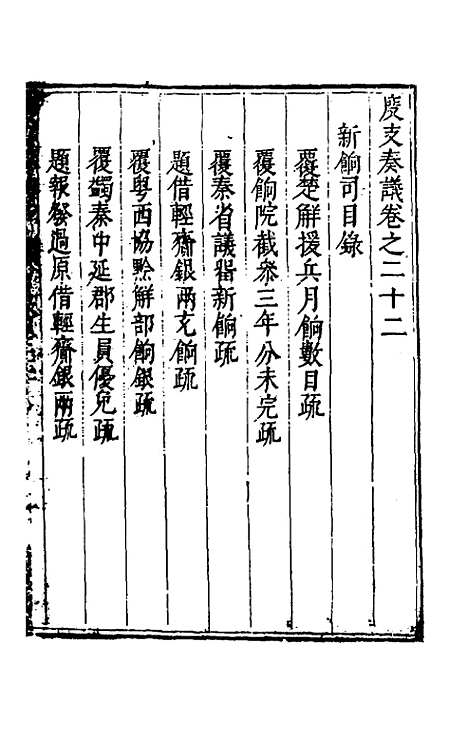 度支奏議卷之二十二
新餉司目錄
覆楚解援兵月餉數目疏
覆餉院截叅三年分未完疏
覆秦省議留新餉疏
題借輕齎銀兩充餉疏
覆粤西協黔解部餉銀疏
覆蠲秦中延郡生員優免疏
題報發過原借輕齎銀兩疏